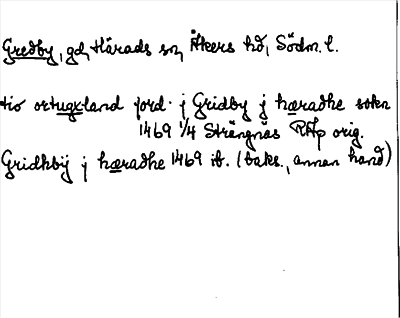 Gredby, gd, Härads sn, Åkers hd, Södm. l.
tio ortugxland jord j Gridby j hæradhe sokn
1469 1/4 Strängnäs RAp orig.
Gridhbÿ j hæradhe 1469 ib. (baks., annan hand)